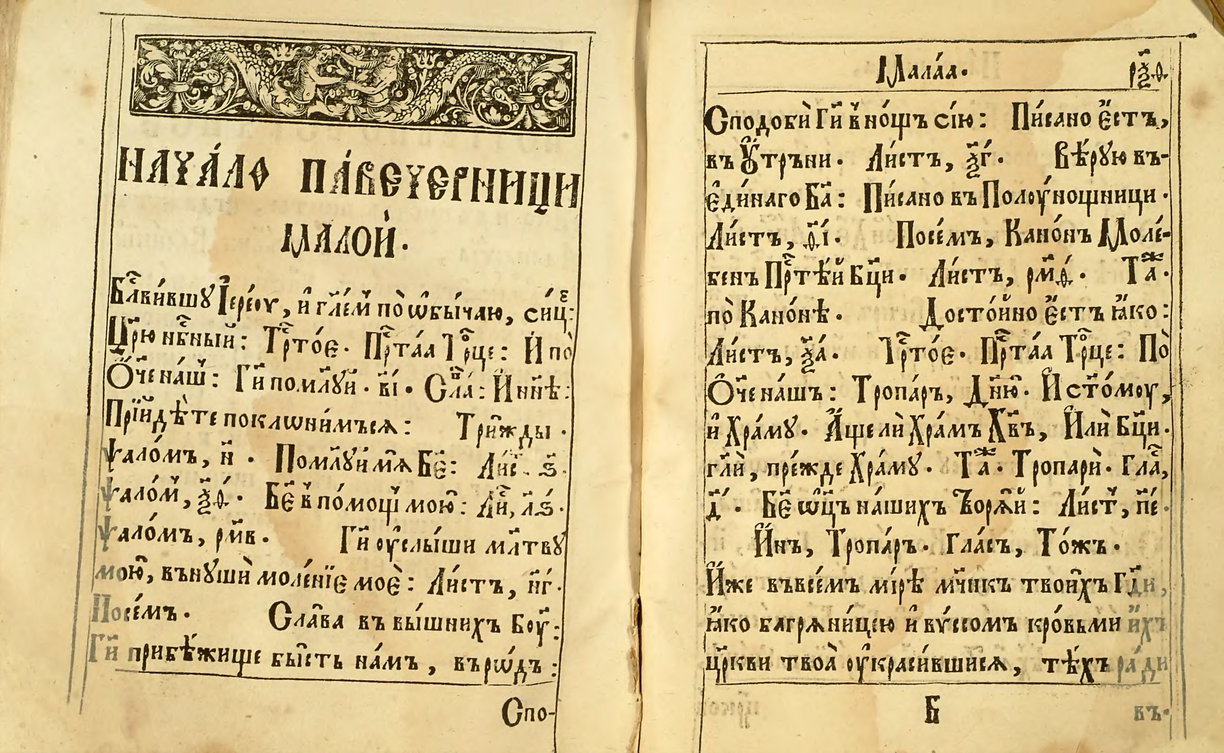 НАЧА́ЛО ПА́ВЕЧЕРНИЦИ
МАЛОЙ.
Бл҃ви́вшꙋ Їере́оу, и҆ гл҃ем по̀ ѡ҆бы́чаю, си́це:
Цр҃ю нб҃ный: Трⷭ҇то́е. Прⷭ҇таѧ Трⷪ҇це: И҆ по̀
Ѻ҆́ч҃е наш: Гⷭ҇и помлꙋй. в҃і. Сла: И҆ нн҃ѣ:
Прїйдѣ́те поклѡни́мъсѧ: Три́жды.
Ѱало́мъ, н҃. Поми́лꙋй мѧ Бж҃е: Лис. ѕ҃.
Ѱало́м, ѯ҃ѳ. Бж҃е в по́мощ мою̀: Ли, л҃ѕ.
Ѱало́мъ, рм҃в. Гⷭ҇и оу҆слы́ши мл҃твꙋ
мою̀, вънꙋшѝ моле́нїе моѐ: Ли́стъ, н҃г.
Посе́мъ. Сла́ва въ вы́шнихъ Боу:
Гⷭ҇и прибѣ́жище бы́сть на́мъ, въ рѡ́дъ:
Спо-
Мала́ѧ. рѯ҃ѳ.
Сподоби Гⷭ҇и в но́щъ сїю: Пи́сано є҆́стъ,
въ Оу҆́тръни. Ли́стъ, ѯ҃г. Вѣ́рꙋю въ-
є҆ди́наго Ба҃: Пи́сано въ Полоу́нощници.
Ли́стъ, ѳ҃і. Посе́мъ, Кано́нъ Моле́-
бенъ Прⷭ҇тѣ́й Бц҃и. Ли́стъ, рм҃ѳ. Таⷤ.
по̀ Кано́нѣ. Досто́йно є҆́стъ ꙗ҆́ко:
Ли́стъ, ѯ҃а. Трⷭ҇то́е. Прⷭ҇таѧ Трⷪ҇це: По̀
Ѻ҆́ч҃е нашъ: Тропа́ръ, Дню҃. И҆ ст҃о́моу,
и҆ Хра́мꙋ. А҆́ще лѝ Хра́мъ Хв҃ъ, И҆лѝ Бц҃и.
гл҃й, пре́жде Хра́мꙋ. Таⷤ. Тропарѝ. Гла,
д҃. Бж҃е ѿц҃ъ на́шихъ Творѧ́й: Ли́ст, п҃е.
И҆́нъ, Тропа́ръ. Гла́съ, То́жъ.
И҆́же въ все́мъ мі́рѣ мч҃нкъ твои́хъ Гдⷭ҇и,
ꙗ҆́ко багрѧни́цею и҆ вѵ́ссомъ кро́вьми и҆́хъ
цр҃кви твоѧ̀ оу҆краси́вшисѧ, тѣ́хъ ра́ди
Б въ-